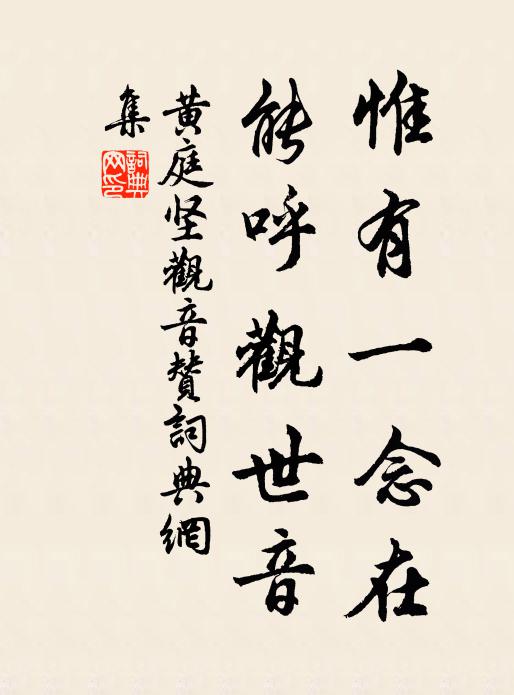 惟有一念在
能呼觀世音
黄庭坚觀音贊詞典網
集
詞典
网印